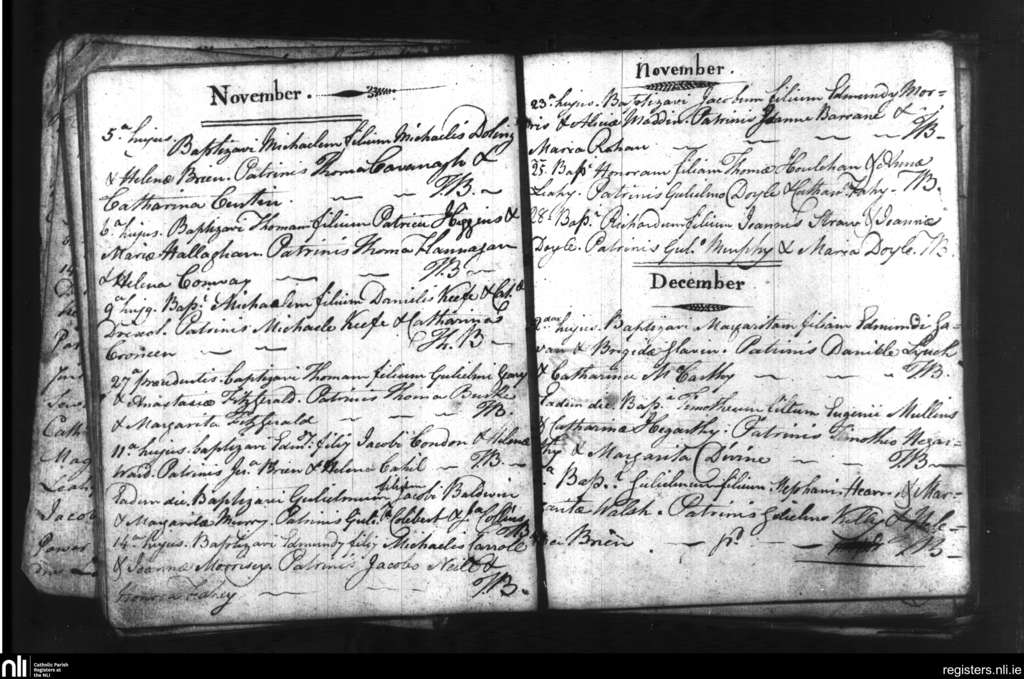 November.
5.a hujus Baptizavi Michaelem filium Michaelis
& Helenæ Breen. Patrinis Thoma Cavanagh &
Catharina Curtin. TB.
6.a hujus. Baptizavi Thomam filium Patricii Higgins &
Mariæ Hallaghan. Patrinis Thoma Lannagan
& Helena Conway TB
9.a hujus. Bapt. Michaelem filium Danielis Keefe & Cat.æ
Patrinis Michaele Keefe & Catharina
Croneen Th. B
27.a præcedentis. baptizavi Thomam filium Gulielmi Gary
& Anastasiæ FitzGerald. Patrinis Thoma Burke
& Margarita FitzGerald TB.
11.a hujus. baptizavi Edm.d filiū Jacobi Condon & Helenæ
Ward. Patrinis Jno. Breen & Helena Cahil TB.
Eadem die. Baptizavi Gulielmum filium Jacobi Baldwin
& Margaritæ Murry. Patrinis Gul. Colibert & Collins TB
14.a hujus. Baptizavi Edmundū filiū Michaelis Carroll
& Joannæ Morrisey. Patrinis Jacobo Neill &
Honora TB.
November.
23.a hujus. Baptizavi Jacobum filium Edmundy Mor-
ris & Aliciæ Maddin. Patrinis Joanne Barrane &
Maria Rahan TB.
25. Bapt. Honoram filiam Thomæ Houlehan & Annæ
Leahy. Patrinis Gulielmo Doyle & Cathar. Fahy. TB.
28. Bapt. Richardum filium Joannis & Joannæ
Doyle. Patrinis Gul.o Murphy & Maria Doyle. TB.
December
hujus. Baptizavi Margaritam filiam Edmundi Ga-
van & Brigidæ Slavin. Patrinis Daniele Lynch
& Catharina McCarthy TB.
Eadem die Bapt. Timotheum filium Eugenii Mullins
& Catharinæ Hegarthy. Patrinis Timotheo Hegar-
thy & Margarita Devine TB
Bapt. Gulielmum filium Stephani Hearn & Mar-
garitæ Walsh. Patrinis Gulielmo Kelly & Hele-
na Brien. pd TB
nli
Catholic Parish
Registers at
the NLI
registers.nli.ie